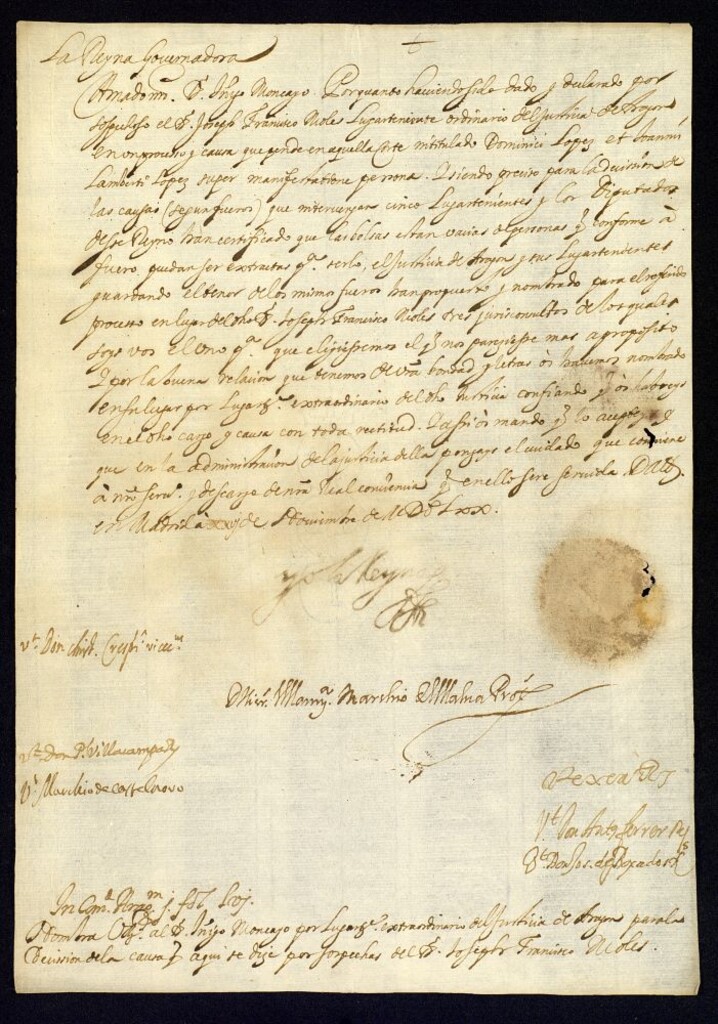 La Reyna Governadora
Amado nr̃o. Dr. Iñigo Moncayo. Por quanto haviendosele dado y declarado por
sospechoso el Dr. Joseph Francisco Moles Lugarteniente ordinario del Justicia de Aragon
en un processo y causa que pende en aquella Corte intitulado Dominici Lopez et Joannis
Lamberti Lopez super manifestatione persona. Y siendo preciso para la decission de
las causas (segun fueros) que intervengan cinco Lugartenientes y los Diputados
desse Reyno han certificado que las bolsas estan vacias de personas q̃ conforme à
fuero, puedan ser extractas pª. serlo, el Justicia de Aragon y sus Lugartenientes
guardando el tenor de los mismos fueros han propuesto y nombrado para el referido
processo en lugar del dho Dr. Joseph Francisco Moles tres jurisconsultos de los quales
soys vos el uno pª. que eligiessemos el q̃ nos pareciesse mas a proposito
Y por la buena relacion que tenemos de vr̃a bondad y letras os havemos nombrado
en su lugar por Lugarte. extraordinario del dho Justicia confiando q̃ os habreys
en el dho cargo y causa con toda rectitud. Y assi os mando q̃ lo acepteys y
que en la administracion de la justicia della pongays el cuidado que conviene
à nr̃o servº. y descargo de nr̃a Real conciencia q̃ en ello sere servida. Datt.
en Madrid à xxj de Noviembre de MDCLxx.
yo la Reyna
Vt. Don Christ. Crespi vicecus.
Marchio
Vt. Don P. Villacampa R.
Vt. Marchio de Castelnovo
Vt. Don Ants. Ferrer Rs.
Vt. Don Jos. de
In Comª. Arag.m j. fol. Lxj.
Nombra V. Magd. al Dr. Iñigo Moncayo por Lugarte. extraordinario del Justicia de Aragon para la
decission de la causa q̃ aqui se dize por sospechas del Dr. Joseph Francisco Moles.